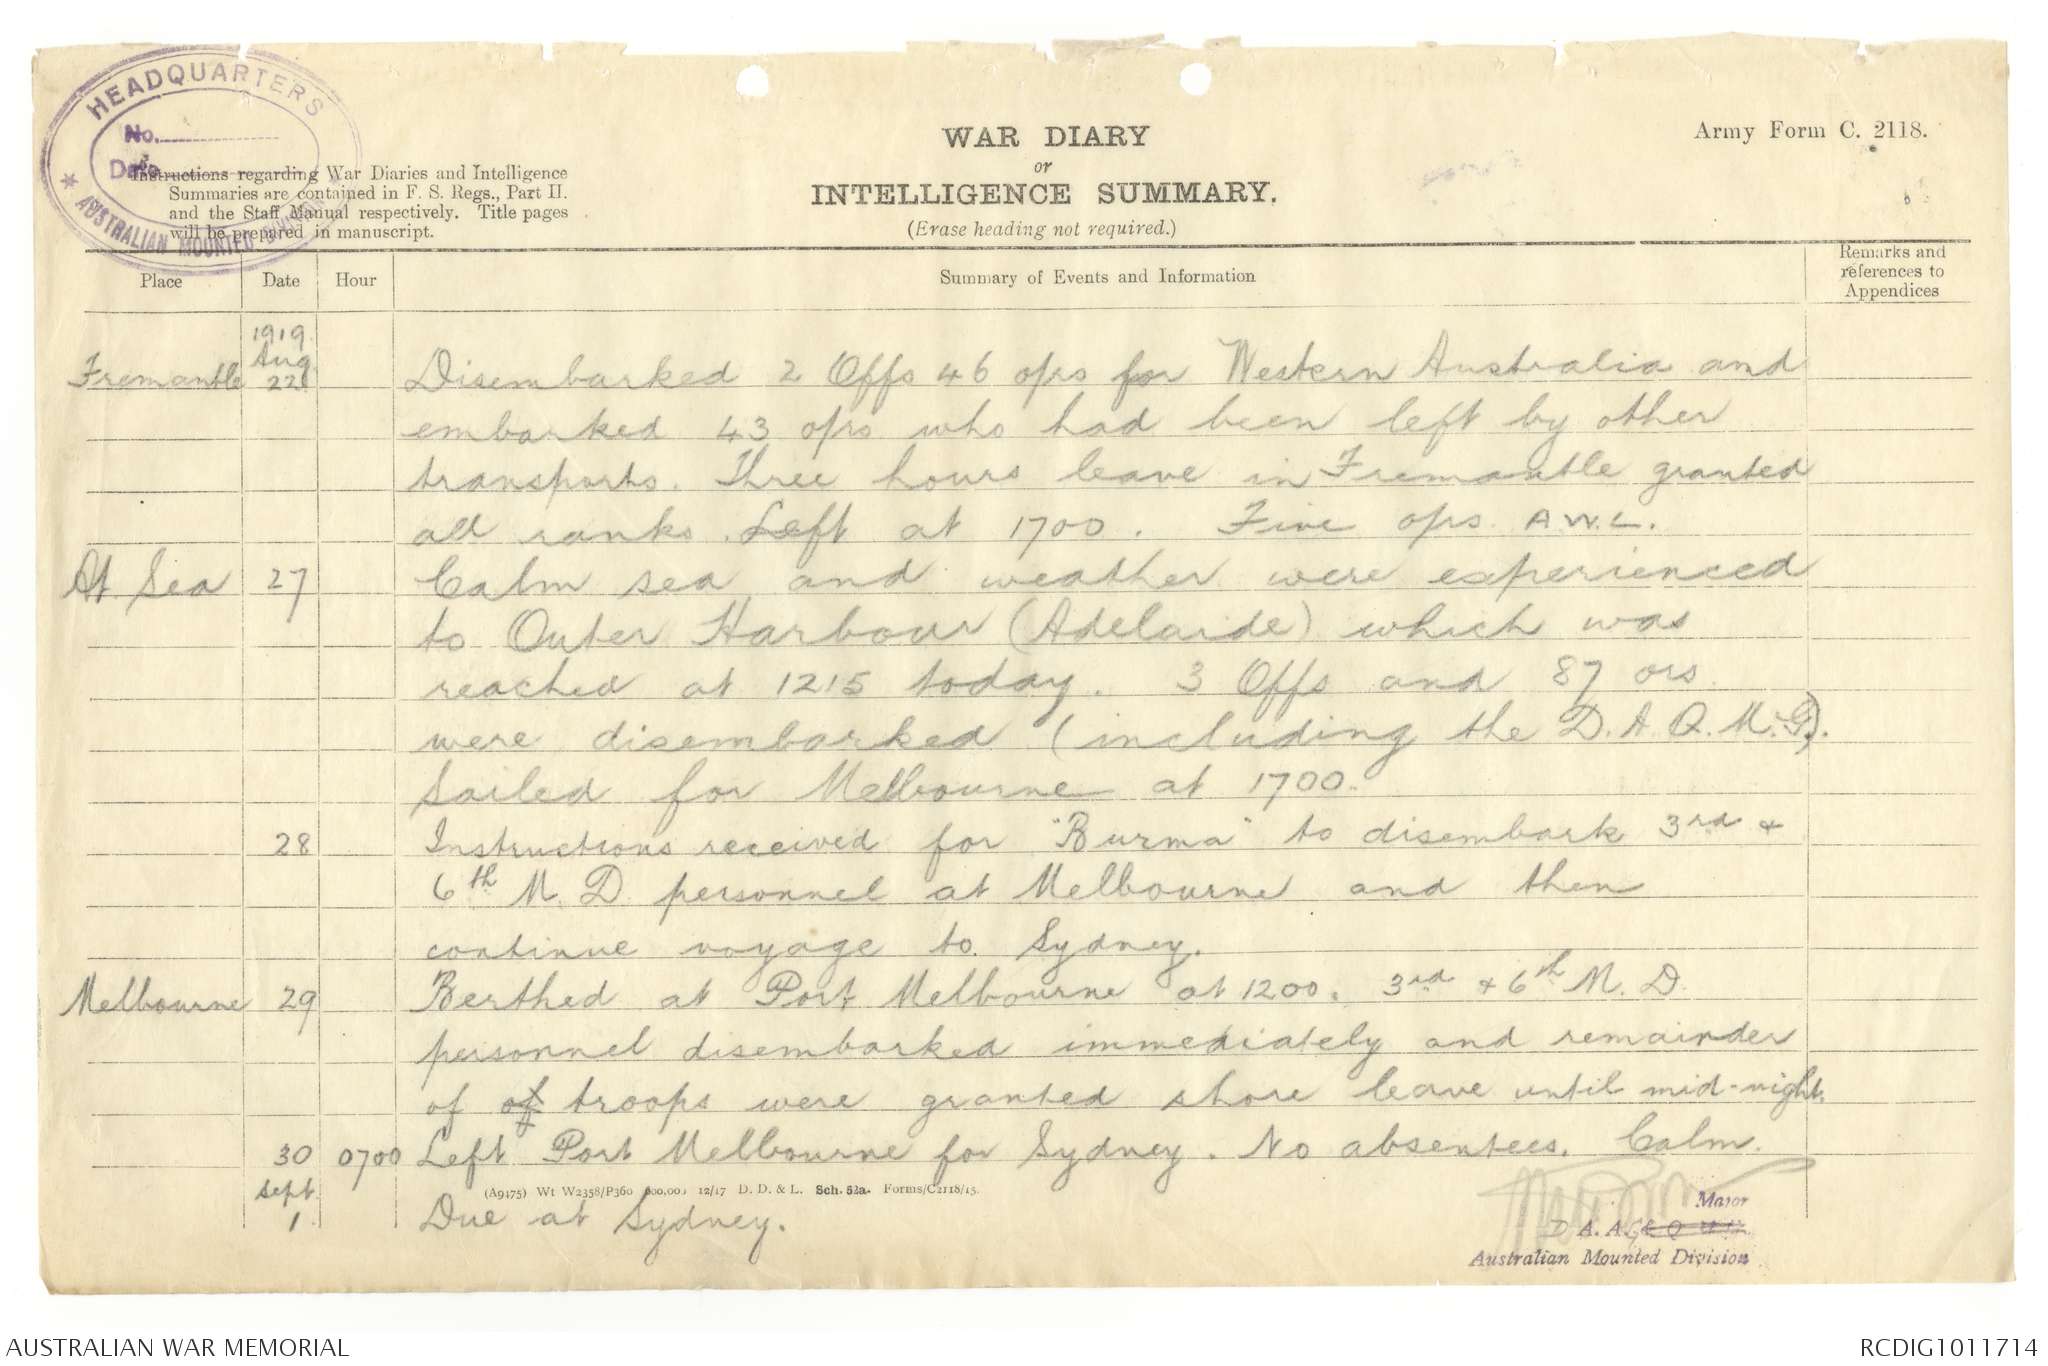 HEADQUARTERS
No.
Date
AUSTRALIAN MOUNTED DIVISION
WAR DIARY
or
INTELLIGENCE SUMMARY.
(Erase heading not required.)
Army Form C. 2118.
Instructions regarding War Diaries and Intelligence
Summaries are contained in F. S. Regs., Part II.
and the Staff Manual respectively. Title pages
will be prepared in manuscript.
Place Date Hour Summary of Events and Information Remarks and references to Appendices
1919
Aug
Fremantle 22 Disembarked 2 Offs 46 oprs for Western Australia and
embarked 43 oprs who had been left by other
transports. Three hours leave in Fremantle granted
all ranks. Left at 1700. Five ops A.W.L.
At Sea 27 Calm sea and weather were experienced
to Outer Harbour (Adelaide) which was
reached at 1215 today. 3 Offs and 87 ors
were disembarked (including the D.A.Q.M.G).
Sailed for Melbourne at 1700.
28 Instructions received for "Burma" to disembark 3rd &
6th M.D. personnel at Melbourne and then
continue voyage to Sydney.
Melbourne 29 Berthed at Port Melbourne at 1200. 3rd & 6th M.D.
personnel disembarked immediately and remainder
of of troops were granted shore leave until mid-night.
30 0700 Left Port Melbourne for Sydney. No absentees. Calm.
Sept
1 Due at Sydney.
(A9475) Wt W2358/P360 600,000 12/17 D. D. & L. Sch. 52a. Forms/C2118/15.
Major
D.A.A.G.
Australian Mounted Division
AUSTRALIAN WAR MEMORIAL
RCDIG1011714